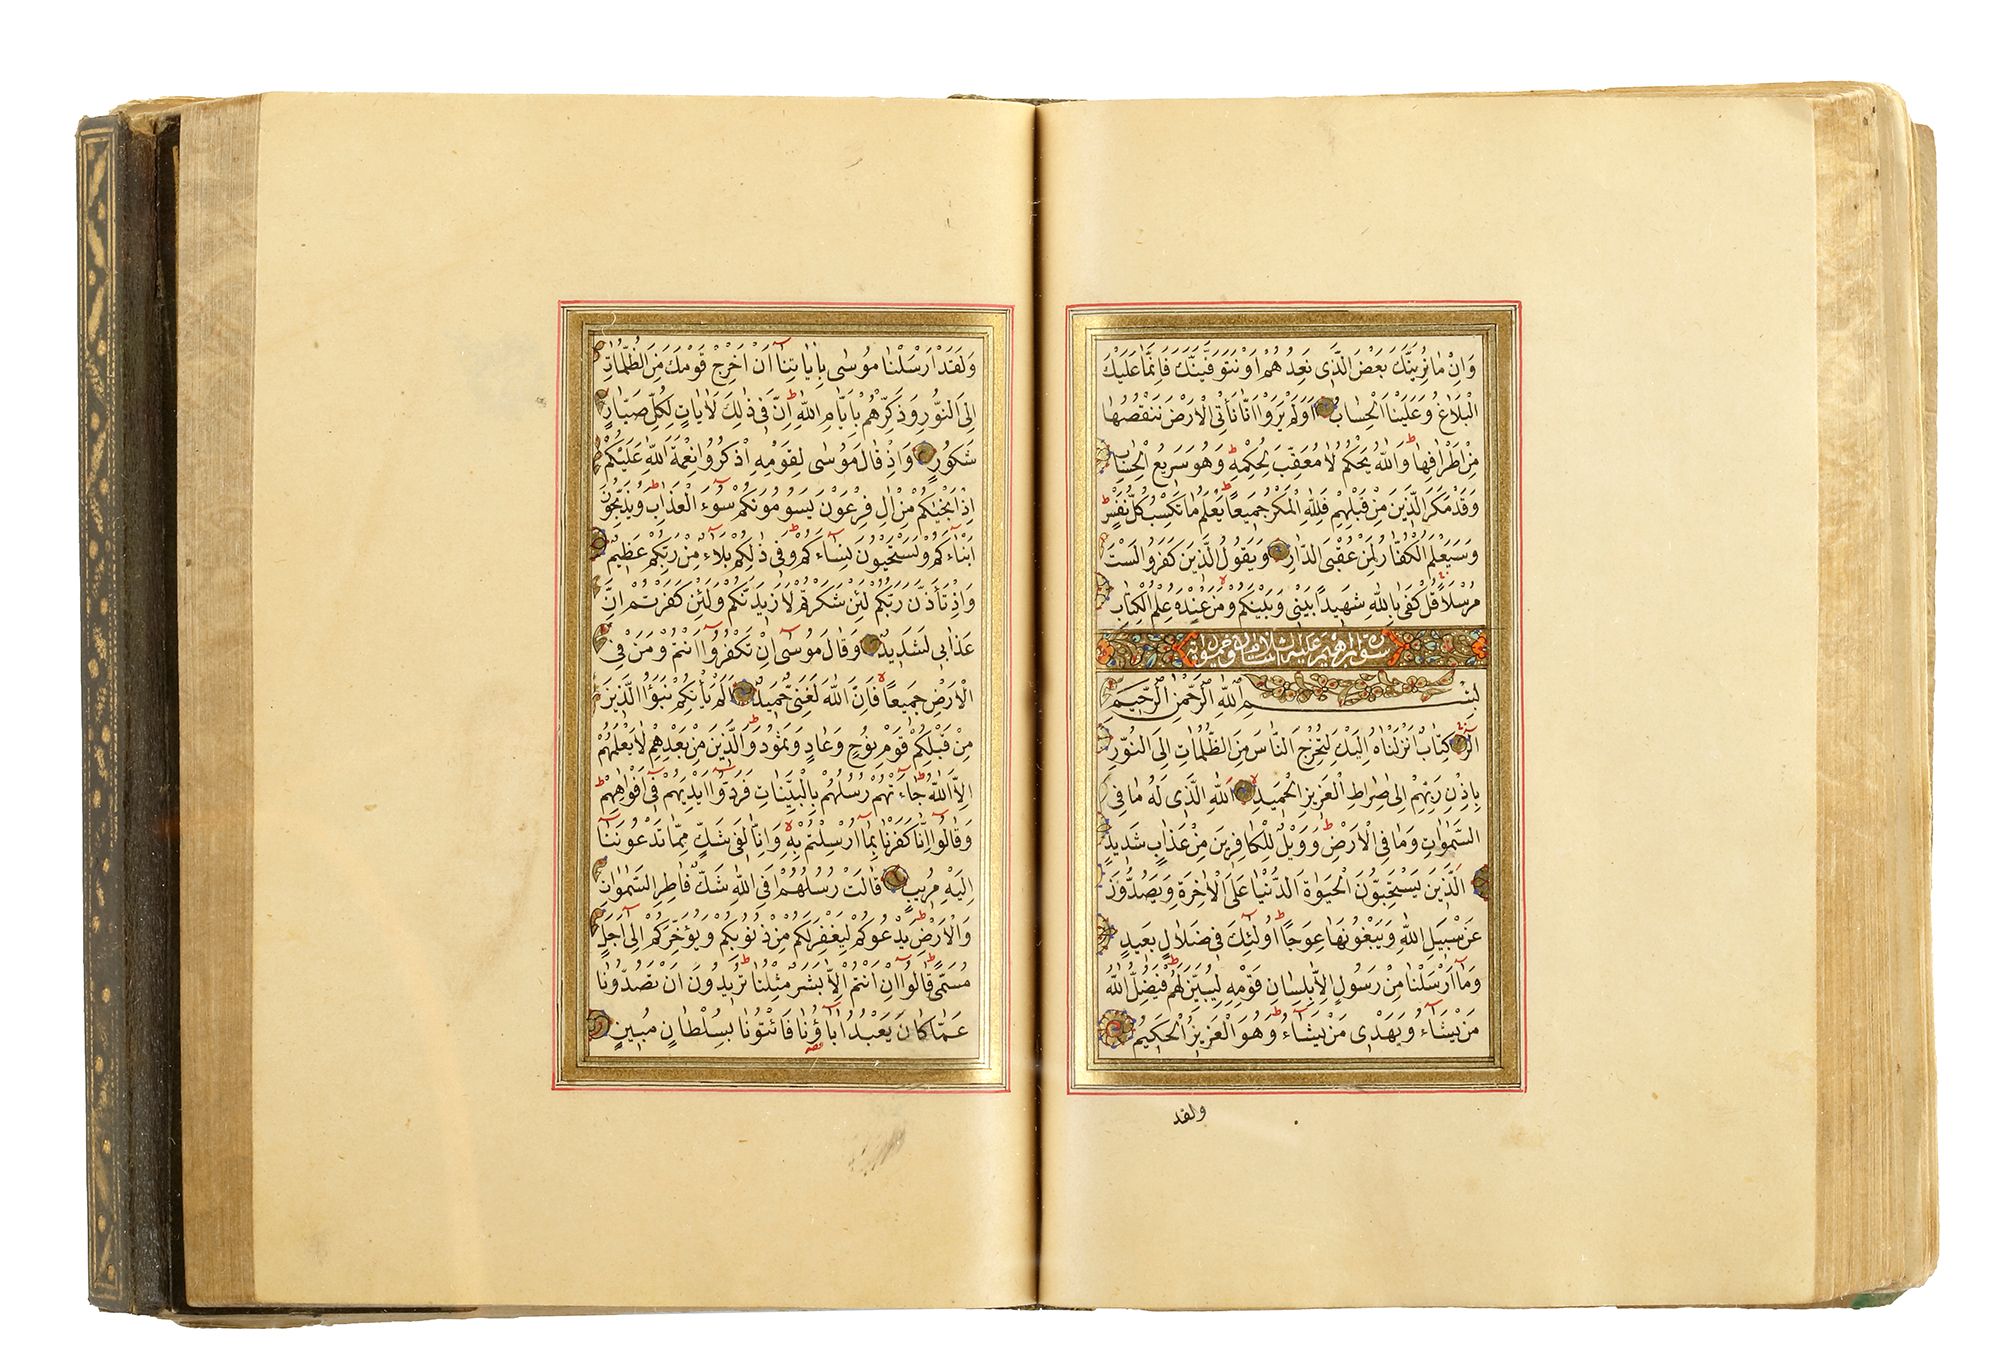 وَاِنْ مَا نُرِيَنَّكَ بَعْضَ الَّذٖى نَعِدُهُمْ اَوْ نَتَوَفَّيَنَّكَ فَاِنَّمَا عَلَيْكَ
الْبَلَاغُ وَعَلَيْنَا الْحِسَابُ اَوَلَمْ يَرَوْا اَنَّا نَأْتِى الْاَرْضَ نَنْقُصُهَا
مِنْ اَطْرَافِهَا ط وَاللّٰهُ يَحْكُمُ لَا مُعَقِّبَ لِحُكْمِهٖ ط وَهُوَ سَرٖيعُ الْحِسَابِ
وَقَدْ مَكَرَ الَّذٖينَ مِنْ قَبْلِهِمْ فَلِلّٰهِ الْمَكْرُ جَمٖيعًا ط يَعْلَمُ مَا تَكْسِبُ كُلُّ نَفْسٍ ط
وَسَيَعْلَمُ الْكُفَّارُ لِمَنْ عُقْبَى الدَّارِ وَيَقُولُ الَّذٖينَ كَفَرُوا لَسْتَ
مُرْسَلًا ط قُلْ كَفٰى بِاللّٰهِ شَهٖيدًا بَيْنٖى وَبَيْنَكُمْ لا وَمَنْ عِنْدَهُ عِلْمُ الْكِتَابِ
سورة ابرهيم عليه السلام وخمسون اية
بِسْمِ اللّٰهِ الرَّحْمٰنِ الرَّحٖيمِ
الٓرٰ كِتَابٌ اَنْزَلْنَاهُ اِلَيْكَ لِتُخْرِجَ النَّاسَ مِنَ الظُّلُمَاتِ اِلَى النُّورِ
بِاِذْنِ رَبِّهِمْ اِلٰى صِرَاطِ الْعَزٖيزِ الْحَمٖيدِ لا اَللّٰهِ الَّذٖى لَهُ مَا فِى
السَّمٰوَاتِ وَمَا فِى الْاَرْضِ ط وَوَيْلٌ لِلْكَافِرٖينَ مِنْ عَذَابٍ شَدٖيدٍ
اَلَّذٖينَ يَسْتَحِبُّونَ الْحَيٰوةَ الدُّنْيَا عَلَى الْاٰخِرَةِ وَيَصُدُّونَ
عَنْ سَبٖيلِ اللّٰهِ وَيَبْغُونَهَا عِوَجًا ط اُولٰٓئِكَ فٖى ضَلَالٍ بَعٖيدٍ
وَمَٓا اَرْسَلْنَا مِنْ رَسُولٍ اِلَّا بِلِسَانِ قَوْمِهٖ لِيُبَيِّنَ لَهُمْ ط فَيُضِلُّ اللّٰهُ
مَنْ يَشَٓاءُ وَيَهْدٖى مَنْ يَشَٓاءُ ط وَهُوَ الْعَزٖيزُ الْحَكٖيمُ
ولقد
وَلَقَدْ اَرْسَلْنَا مُوسٰى بِاٰيَاتِنَٓا اَنْ اَخْرِجْ قَوْمَكَ مِنَ الظُّلُمَاتِ
اِلَى النُّورِ وَذَكِّرْهُمْ بِاَيَّامِ اللّٰهِ ط اِنَّ فٖى ذٰلِكَ لَاٰيَاتٍ لِكُلِّ صَبَّارٍ
شَكُورٍ وَاِذْ قَالَ مُوسٰى لِقَوْمِهِ اذْكُرُوا نِعْمَةَ اللّٰهِ عَلَيْكُمْ
اِذْ اَنْجٰيكُمْ مِنْ اٰلِ فِرْعَوْنَ يَسُومُونَكُمْ سُٓوءَ الْعَذَابِ وَيُذَبِّحُونَ
اَبْنَٓاءَكُمْ وَيَسْتَحْيُونَ نِسَٓاءَكُمْ ط وَفٖى ذٰلِكُمْ بَلَٓاءٌ مِنْ رَبِّكُمْ عَظٖيمٌ
وَاِذْ تَاَذَّنَ رَبُّكُمْ لَئِنْ شَكَرْتُمْ لَاَزٖيدَنَّكُمْ وَلَئِنْ كَفَرْتُمْ اِنَّ
عَذَابٖى لَشَدٖيدٌ وَقَالَ مُوسٰٓى اِنْ تَكْفُرُٓوا اَنْتُمْ وَمَنْ فِى
الْاَرْضِ جَمٖيعًا لا فَاِنَّ اللّٰهَ لَغَنِىٌّ حَمٖيدٌ اَلَمْ يَأْتِكُمْ نَبَؤُا الَّذٖينَ
مِنْ قَبْلِكُمْ قَوْمِ نُوحٍ وَعَادٍ وَثَمُودَ ط وَالَّذٖينَ مِنْ بَعْدِهِمْ لَا يَعْلَمُهُمْ
اِلَّا اللّٰهُ ط جَٓاءَتْهُمْ رُسُلُهُمْ بِالْبَيِّنَاتِ فَرَدُّٓوا اَيْدِيَهُمْ فٖٓى اَفْوَاهِهِمْ
وَقَالُٓوا اِنَّا كَفَرْنَا بِمَٓا اُرْسِلْتُمْ بِهٖ وَاِنَّا لَفٖى شَكٍّ مِمَّا تَدْعُونَنَٓا
اِلَيْهِ مُرٖيبٍ قَالَتْ رُسُلُهُمْ اَفِى اللّٰهِ شَكٌّ فَاطِرِ السَّمٰوَاتِ
وَالْاَرْضِ ط يَدْعُوكُمْ لِيَغْفِرَ لَكُمْ مِنْ ذُنُوبِكُمْ وَيُؤَخِّرَكُمْ اِلٰٓى اَجَلٍ
مُسَمًّى ط قَالُٓوا اِنْ اَنْتُمْ اِلَّا بَشَرٌ مِثْلُنَا ط تُرٖيدُونَ اَنْ تَصُدُّونَا
عَمَّا كَانَ يَعْبُدُ اٰبَٓاؤُنَا فَأْتُونَا بِسُلْطَانٍ مُبٖينٍ